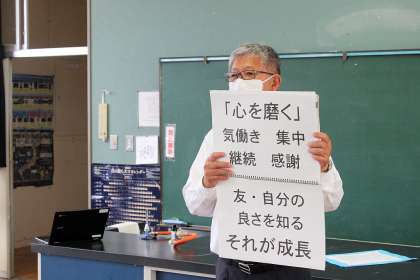 「心を磨く」
気働き　集中
継続　感謝
友・自分の
良さを知る
それが成長